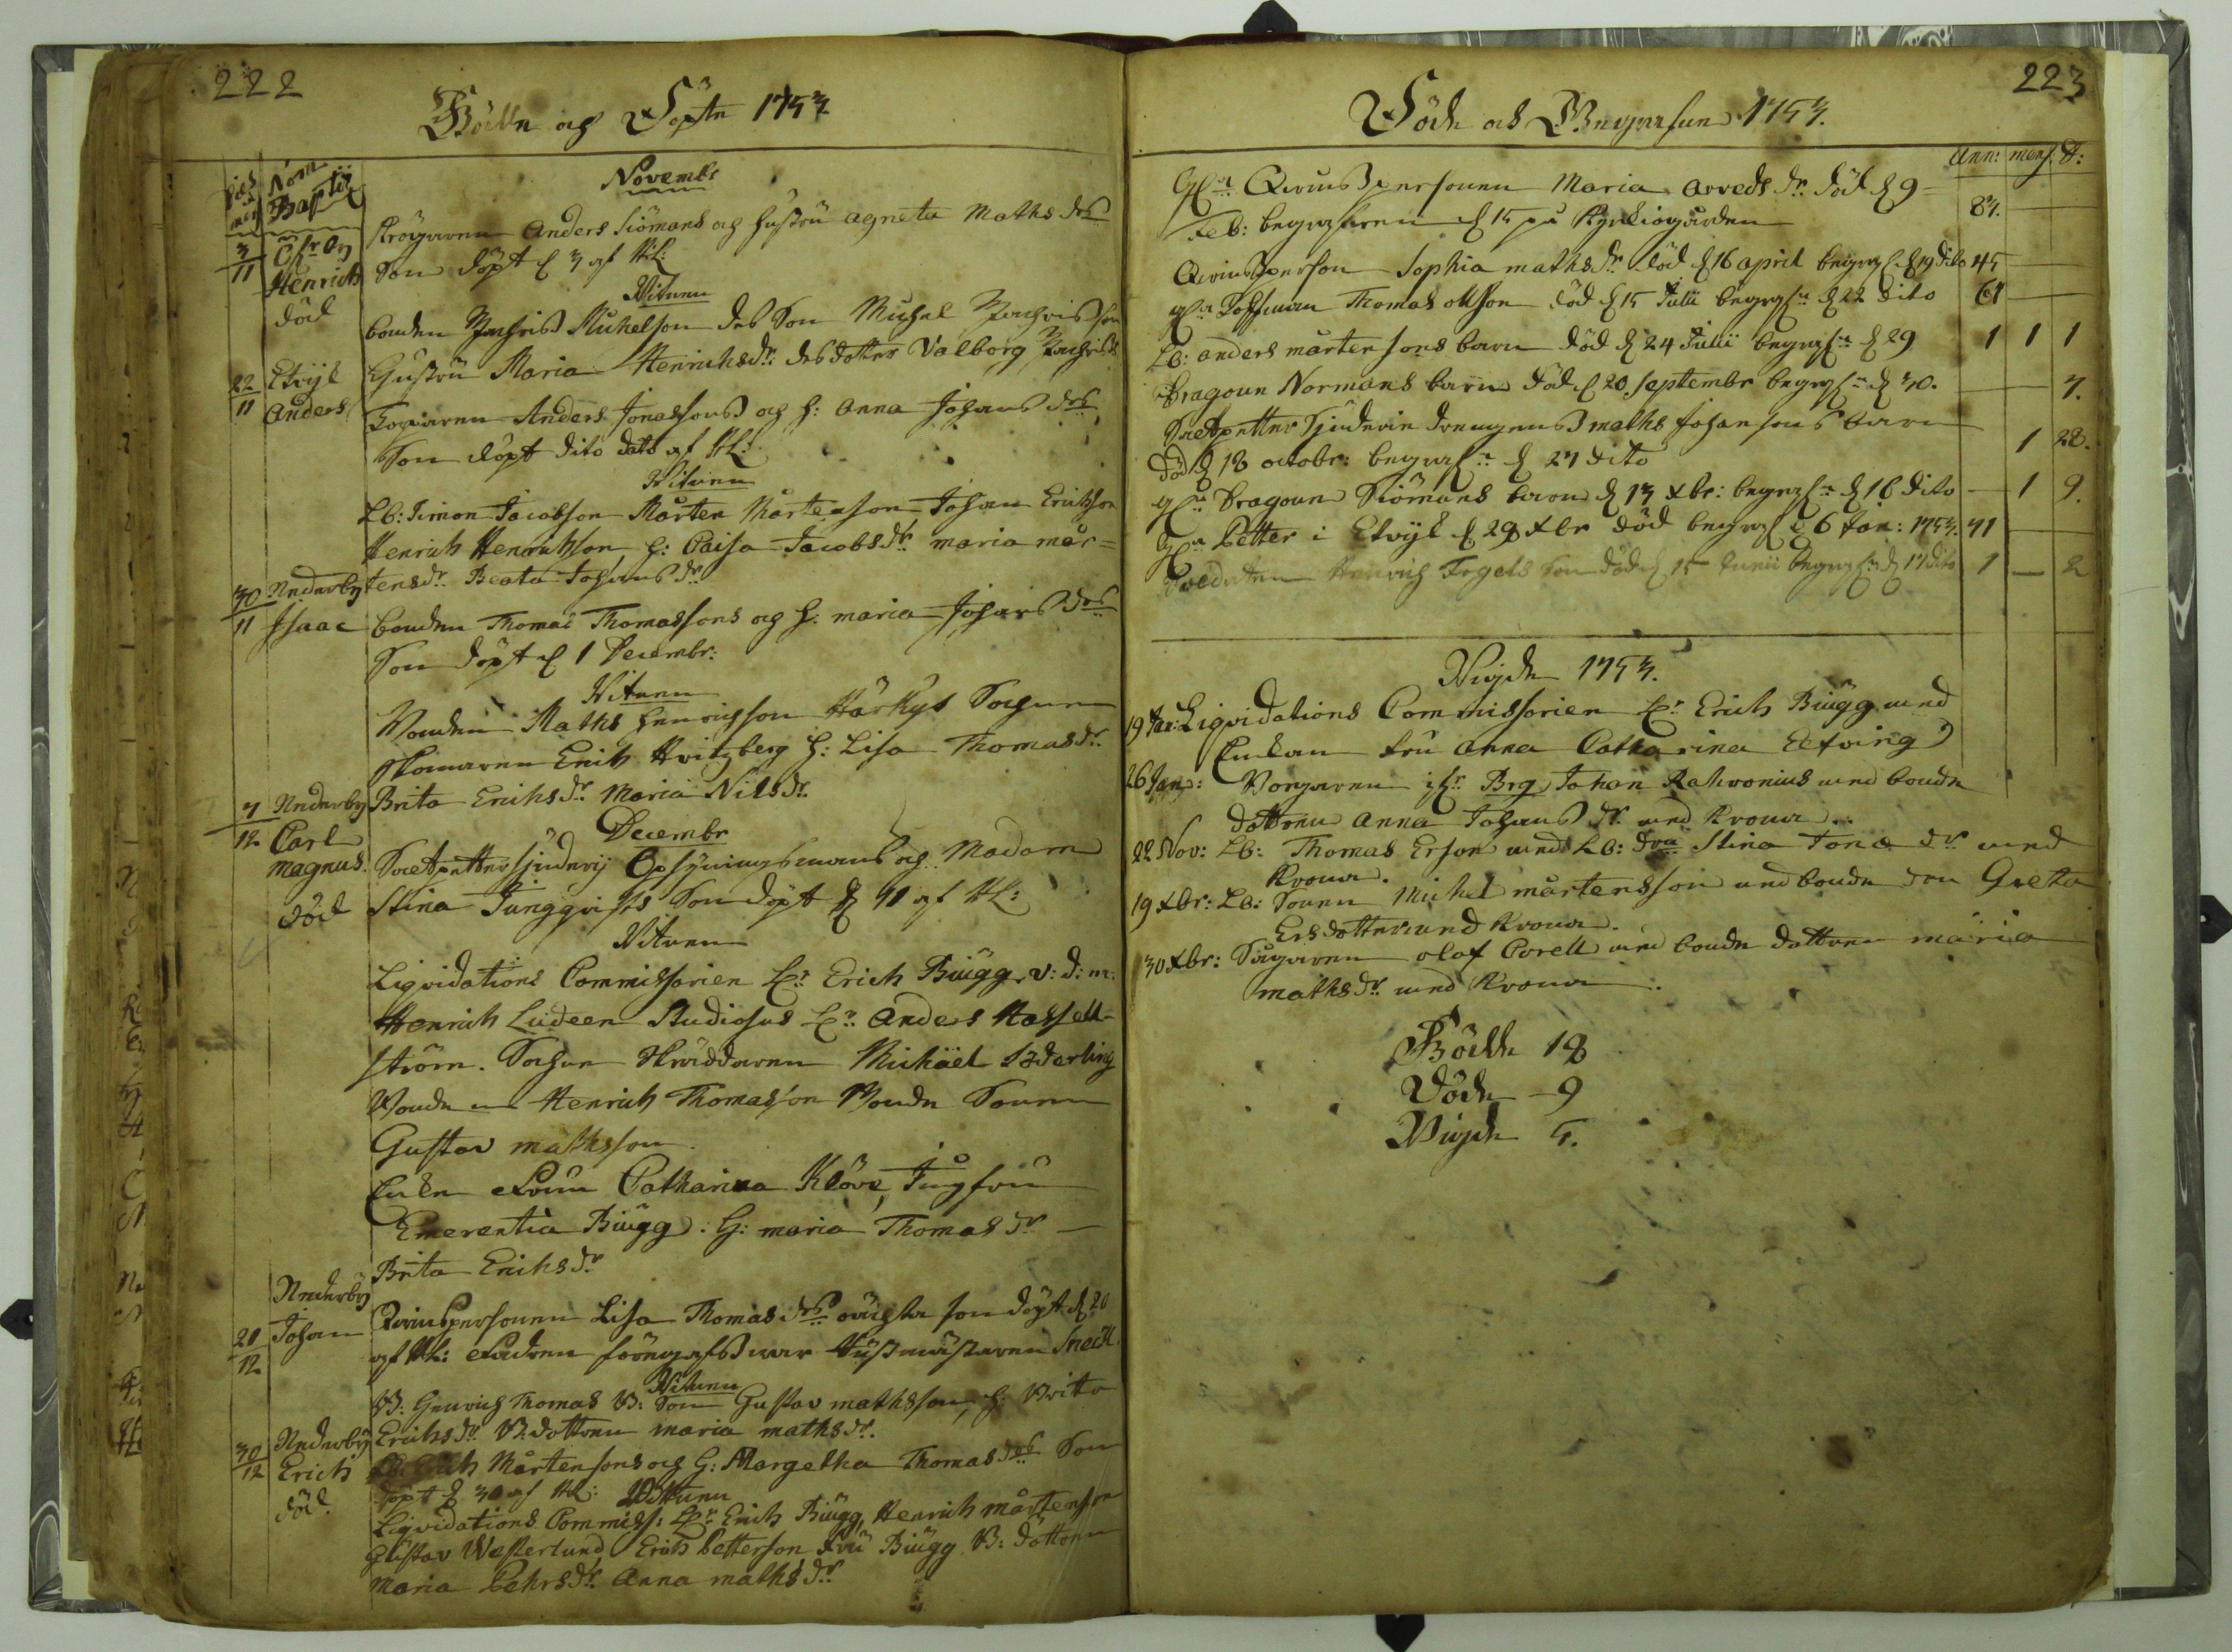 222
Födde og Döpte 1753
Dies
mens
Nom
Baptiz
Novembr
3
11
Öfr By
Henrich
död
Krögaren Anders Siömans og hustru Agneta Mathsdrs
Son döpt d 3 af HL:
Vitnen
bonden Zachris Michelson des Son Michel Zachrisson
Hustru Maria Henrichsdr. des dotter Valborg Zachrisdr
22
11
Etvijk
Anders
Torparen Anders Jonassons og h: Anna Johansdrs
Son döpt dito dato af HL:
Vitnen
Lb: Simon Jacobson Mårten Mårtenson Johan Erichson
Henrich Henrichson, h: Caisa Jacobsdr maria mår=
tensdr. Beata Johansdr
30
11
Nederby
Isaac
bonden Thomas Thomassons og h: maria Johansdrs
Son döpt d 1 Decembr:
Vitnen
Bonden Maths Henrichson Härkys Sochnen
Skomaren Erich Kritzberg h: Lisa Thomasdr.
Brita Erichsdr. Maria Nilsdr.
7
12
Nederby
Carl
magnus.
död
Decembr
Saltpettersjuderij Opsyningsmans og Madam
Stina Junggvists Son döpt d 11 af HL:
Vitnen
Liqvidations Commissarien Hr. Erich Büügg, v: d: m:
Henrich Ludeen Studiosus Hr. Anders Hassell-
ström. Sochne Skräddaren Michäel Söderling
Bonden Henrich Thomasson Bonde Sonen
Gustav mathsson
Enke Fruu Catharina Klöve, Jungfru
Emerentia Büügg. H: maria Thomasdr
Brita Erichsdr
21
12
Nederby
Johan
Qvinspersonen Lisa Thomasdrs oächta son döpt d 20
af HL: Fadren föregafs war Rustmästaren Snäll.
Vitnen
B: Henrich Thomas B: Son Gustav mathsson, h: Brita
Erichsdr B: dottren maria mathsdr.
30
12
Nederby
Erich
död.
Lb: Erich Mårtensons og H: Margetha Thomasdrs Son
döpt d 30 af HL: Vittnen
Liqvidations Commiss: Hr Erich Büügg, Henrich mårtenson
Gustav Westerlund, Erich Petterson Fru Büügg B: dottren
Maria Pehrsdr. Anna mathsdr
223
Döde och Begrafne 1753.
Ann: mens. d:
Gla Qvinspersonen Maria Arvedsdr. död d 9
Feb: begrafven d 15 på Kyrkiogården 83.
Qvinsperson Sophia mathsdr. död d 16 april begraf: d 19 dito 45
gla Thomas olsson död d 15 Julii begrafn d 22 dito 61
Lb: anders mårtensons barn död d 24 Julii begrafn d 29 1 1 1
Dragoun Normans barn död d 20 Septembr begrafn d 30. 7.
Saltpetter Sjuderie drengens maths Johansons barn
död d 18 octobr: begrafn d 27 dito 1 28.
gla Dragoun Siömans barn d 13 xbr: begrafn d 16 dito 1 9.
gla Petter i Etvijk d 29 xbr död begraf d 6 Jan: 1753. 71
Soldaten Henrich Fogels Son död d 15 Junii begrafn d 17 dito 1 — 2
Vigde 1753.
19 Jan: Liqvidations Commissarien Hr. Erich Büügg med
Enkan Fru Anna Catharina Elfving
26 Jan: Borgaren ifr. Brg, Johan Rahvonius med bonde
dottren Anna Johansdr. med Krona.
22 Nov: Lb: Thomas Erson med Lb: dra Stina Tonedr med
Krona.
19 xbr: Lb: Sonen Michel mårtensson med bonde dra Greta
Ersdotter med Krona.
30 xbr: Sågaren olof Corell med bonde dottren maria
mathsdr. med Krona.
Födde 18
Döde — 9
Vigde 5.